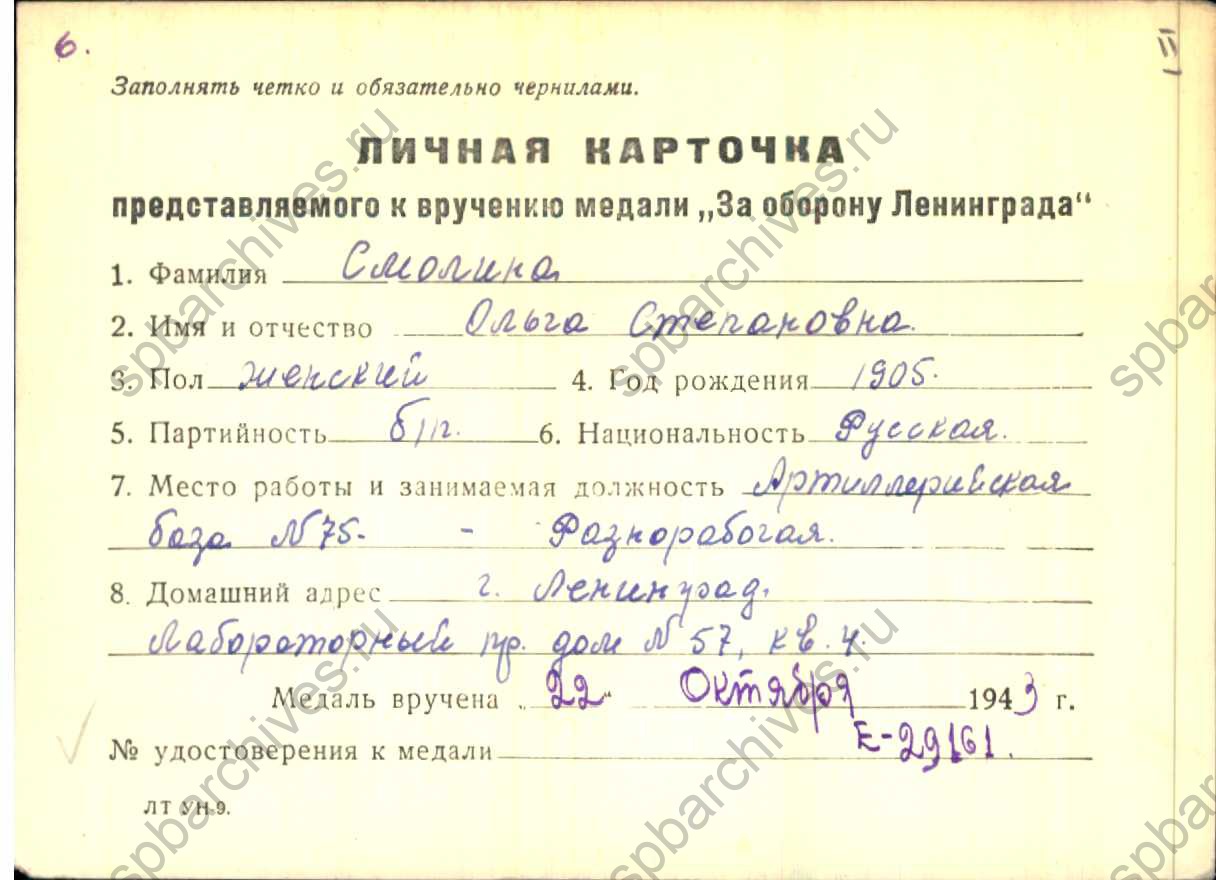 6.
II
Заполнять четко и обязательно чернилами.
ЛИЧНАЯ КАРТОЧКА
представляемого к вручению медали „За оборону Ленинграда“
1. Фамилия Смолина
2. Имя и отчество Ольга Степановна.
3. Пол женский 4. Год рождения 1905.
5. Партийность б/п. 6. Национальность Русская.
7. Место работы и занимаемая должность Артиллерийская
база N 75. - Разнорабочая.
8. Домашний адрес г. Ленинград.
Лабораторный пр. дом N 57, кв. 4.
Медаль вручена „22“ Октября 1943 г.
№ удостоверения к медали Е-29161.
ЛТ УН-9.
spbarchives.ru